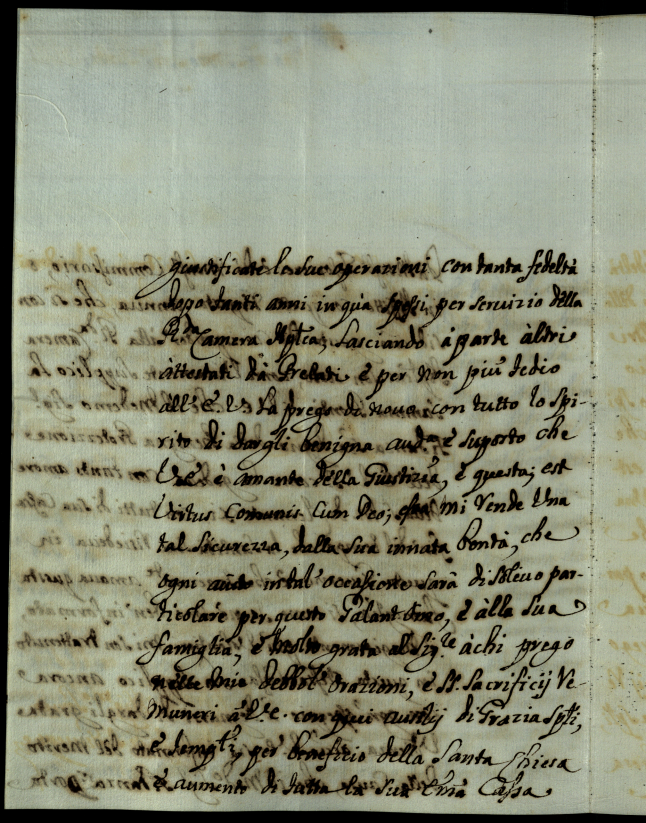 giustificati le sue operazioni con tanta fedeltà
dopo tanti anni in quà spesi per servizio della
R.da Camera Ap.tca, lasciando à parte àltri
àttestati dà Prelati è per non più tedio
all' E. V. La prego di novo con tutto lo spi-
rito di dargli benigna aud.a è suposto che
V. E. è amante della Giustizia, è questa; est
Virtus Comunis Cum Deo; mi rende Una
tal sicurezza, dalla sua innata bontà, che
ogni in tal' occasione sarà di solievo par-
ticolare per questo Galant'omo, è àlla sua
famiglia, è molto grata al Sig.re à chi prego
nelle mie debbol.i orazioni, è S.i Sacrificij re-
muneri à con quei di Grazia Sp.li,
è temp.li, per beneficio della Santa Chiesa
è aumento di tutta la sua Casa